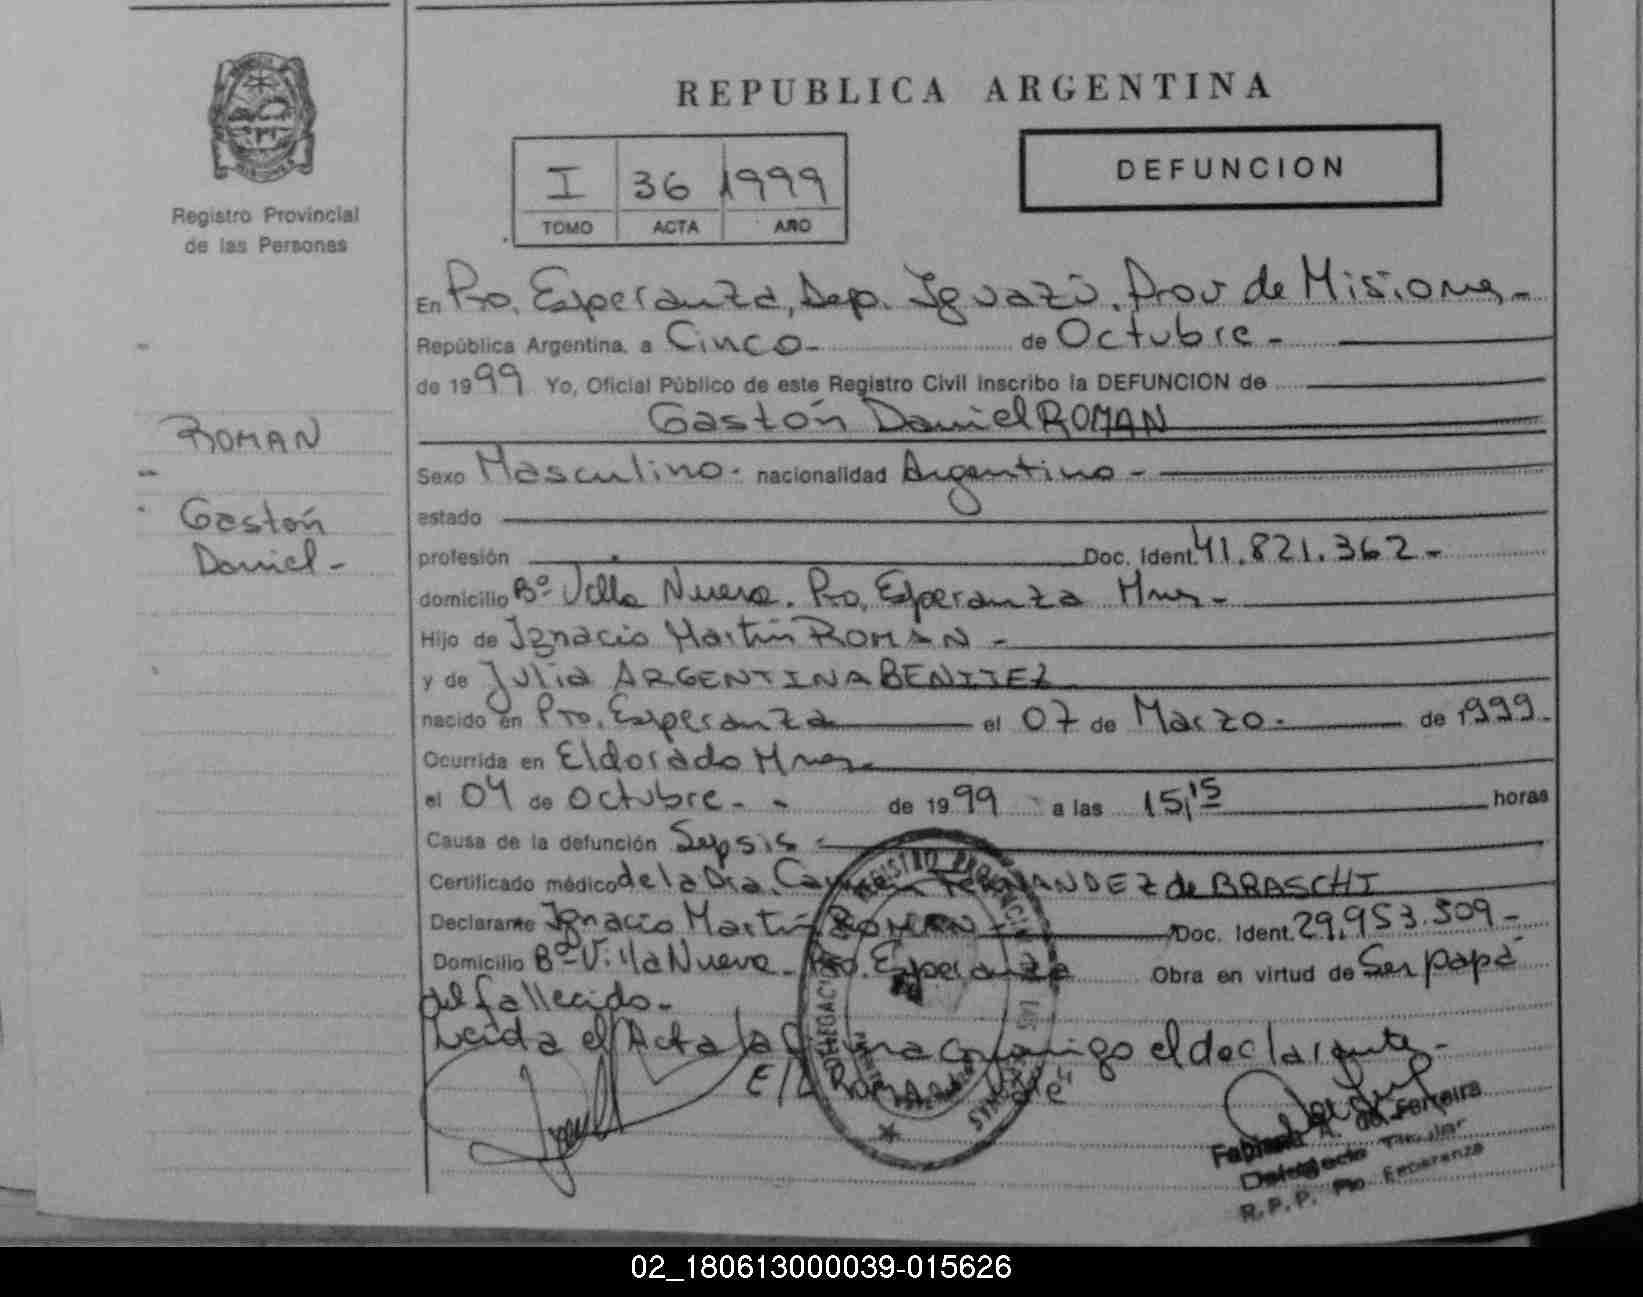 Registro Provincial
de las Personas
ROMAN
Gastón
Daniel -
REPUBLICA ARGENTINA
I 36 1999
TOMO ACTA AÑO
DEFUNCION
En Pto. Esperanza, Dep. Iguazú. Prov de Misiones -
República Argentina, a Cinco - de Octubre -
de 1999 Yo, Oficial Público de este Registro Civil inscribo la DEFUNCION de
Gastón Daniel ROMAN
Sexo Masculino - nacionalidad Argentino -
estado
profesión Doc. Ident. 41.821.362 -
domicilio Bº Villa Nueva. Pto. Esperanza Mnes -
Hijo de Ignacio Martín ROMAN -
y de Julia ARGENTINA BENITEZ
nacido en Pto. Esperanza el 07 de Marzo - de 1999 -
Ocurrida en Eldorado Mnes -
el 04 de octubre - - de 1999 a las 15,15 horas
Causa de la defunción Sepsis -
Certificado médico de la Dra. Carmen FERNANDEZ de BRASCHI
Declarante Ignacio Martín ROMAN - Doc. Ident. 29.953.509 -
Domicilio Bº Villa Nueva - Pto. Esperanza Obra en virtud de Ser papá
del fallecido -
Leida el Acta la firma conmigo el declarante -
REGISTRO PROVINCIAL
DELEGACION
de Ferreira
Delegado Titular
R.P.P. Pto Esperanza
02_180613000039-015626